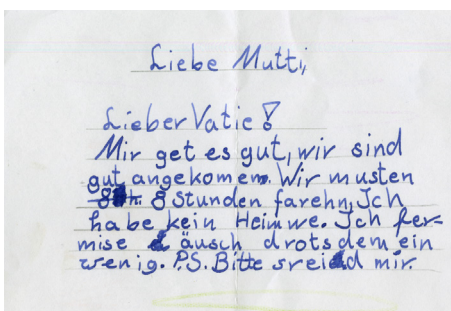 Liebe Mutti,
Lieber Vatie!
Mir get es gut, wir sind
gut angekomen. Wir musten
8 Stunden farehn, Ich
habe kein Heimwe. Ich fer-
mise äusch drotsdem ein
wenig. P.S. Bitte sreibd mir.